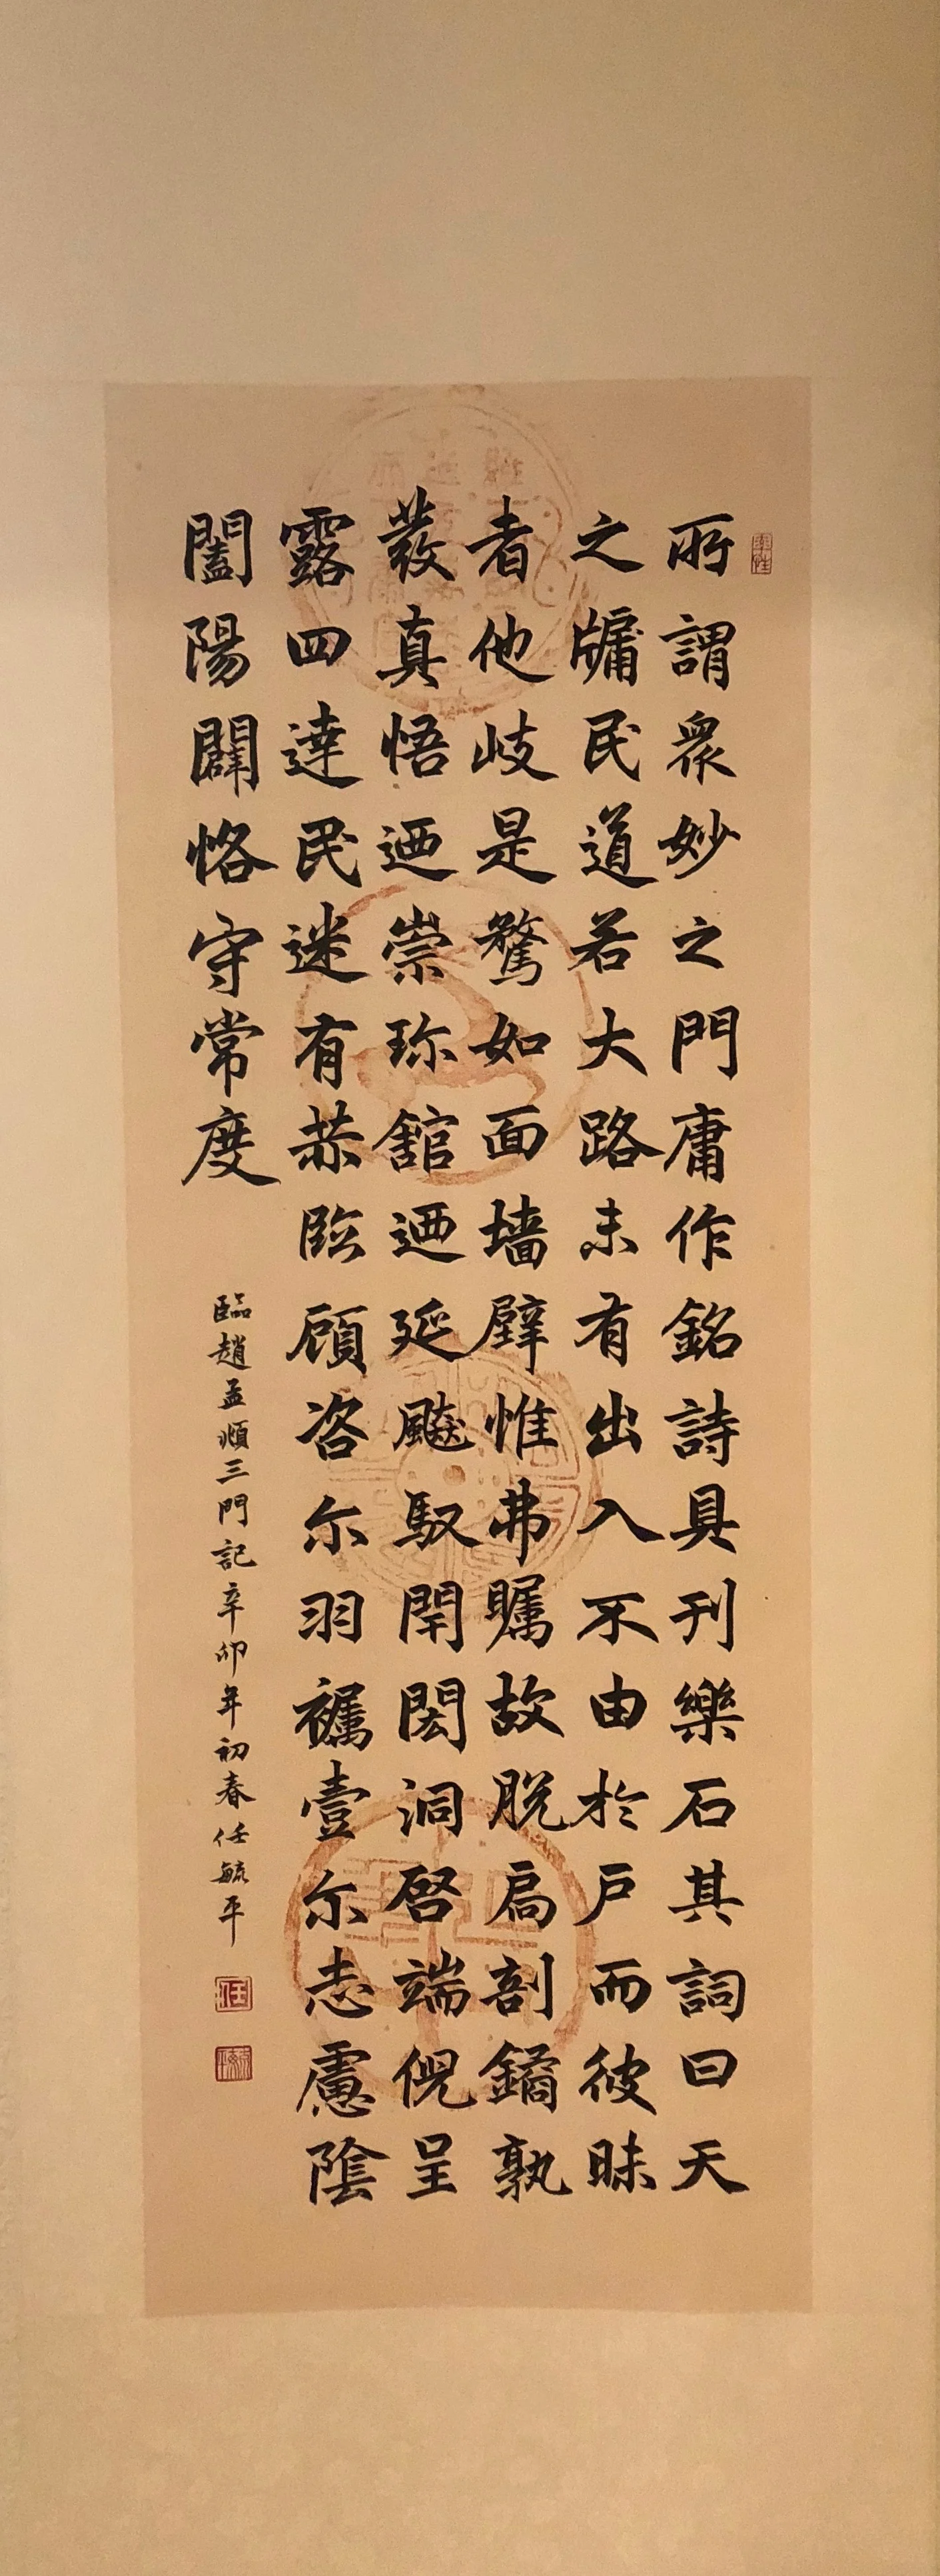 所謂衆妙之門庸作銘詩具刊樂石其詞曰天
之牖民道若大路未有出入不由於戶而彼昧
者他岐是騖如面墙壁惟弗矚故脱扃剖鐍孰
發真悟迺崇珎舘迺延飈馭閈閎洞啓端倪呈
露四達民迷有赫臨顧咨尓羽襵壹尓志慮陰
闔陽闢恪守常度
臨趙孟頫三門記辛卯年初春任毓平